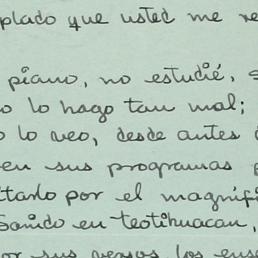 plado que usted me re
piano, no estudié, s
o lo hago tan mal;
o lo veo, desde antes
en sus programas p
itarlo por el magnífi
Sonido en Teotihuacan,
or sus versos los ens